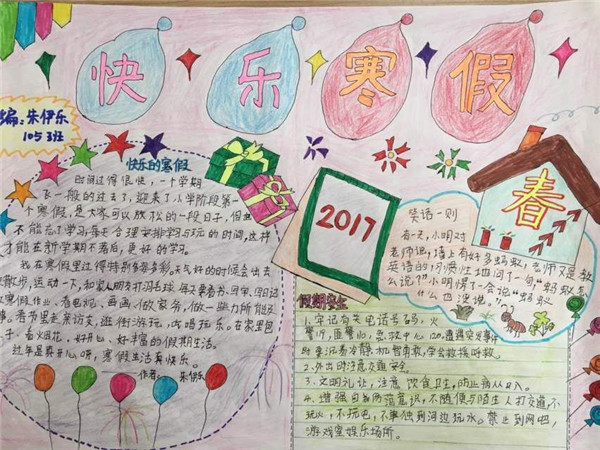 快乐寒假
编:朱伊乐
105班
快乐的寒假
时间过得很快,一个学期
飞一般的过去了,迎来了小学阶段第一
个寒假,是大家可以放松的一段日子,但也
不能忘了学习,每天合理安排学习与玩的时间,这样
才能在新学期不落后,更好的学习。
我在寒假里过得特别多多彩,天气好的时候会出去
散步,运动一下,和家人朋友打打球
寒假作业、看电视、画画、做家务,做一些力所能及
事。春节里走亲访友,逛街游玩,
子、看烟花,好开心、好丰富的假期生活。
过年是真开心呀,寒假生活真快乐。
作者: 朱伊乐
2017
春
笑话一则
有一天,小明对
老师说,墙上有好多蚂蚁,老师又是教
英语的,习惯性地问了一句"蚂蚁怎
么说?"小明愣了一会"蚂蚁
什么也没说。"
假期安全
1、牢记有关电话号码,火
警119,匪警110,急救中心120,遭遇突发事件
时要沉着冷静,机智勇敢,学会救援呼救。
2、外出时注意交通安全
3、文明礼让,注意饮食卫生,防止病从口入。
4、增强自我防范意识,不随便与陌生人打交道,不
玩火,不玩电,不单独到河边玩水。禁止到网吧,
游戏室娱乐场所。